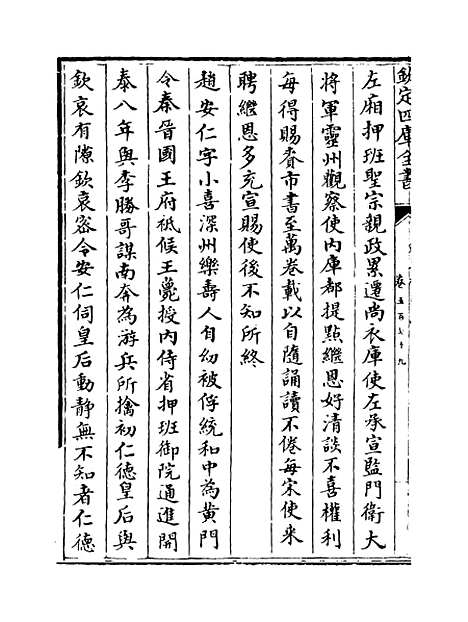 欽定四庫全書
左廂押班聖宗親政累遷尚衣庫使左承宣監門衛大
將軍靈州觀察使內庫都提點繼恩好清談不喜權利
每得賜賚市書至萬卷載以自隨誦讀不倦每宋使來
聘繼恩多充宣賜使後不知所終
趙安仁字小喜深州樂壽人自幼被俘統和中為黄門
令秦晉國王府祗候王薨授內侍省押班御院通進開
泰八年與李勝哥謀南奔為游兵所擒初仁德皇后與
欽哀有隙欽哀密令安仁伺皇后動靜無不知者仁德